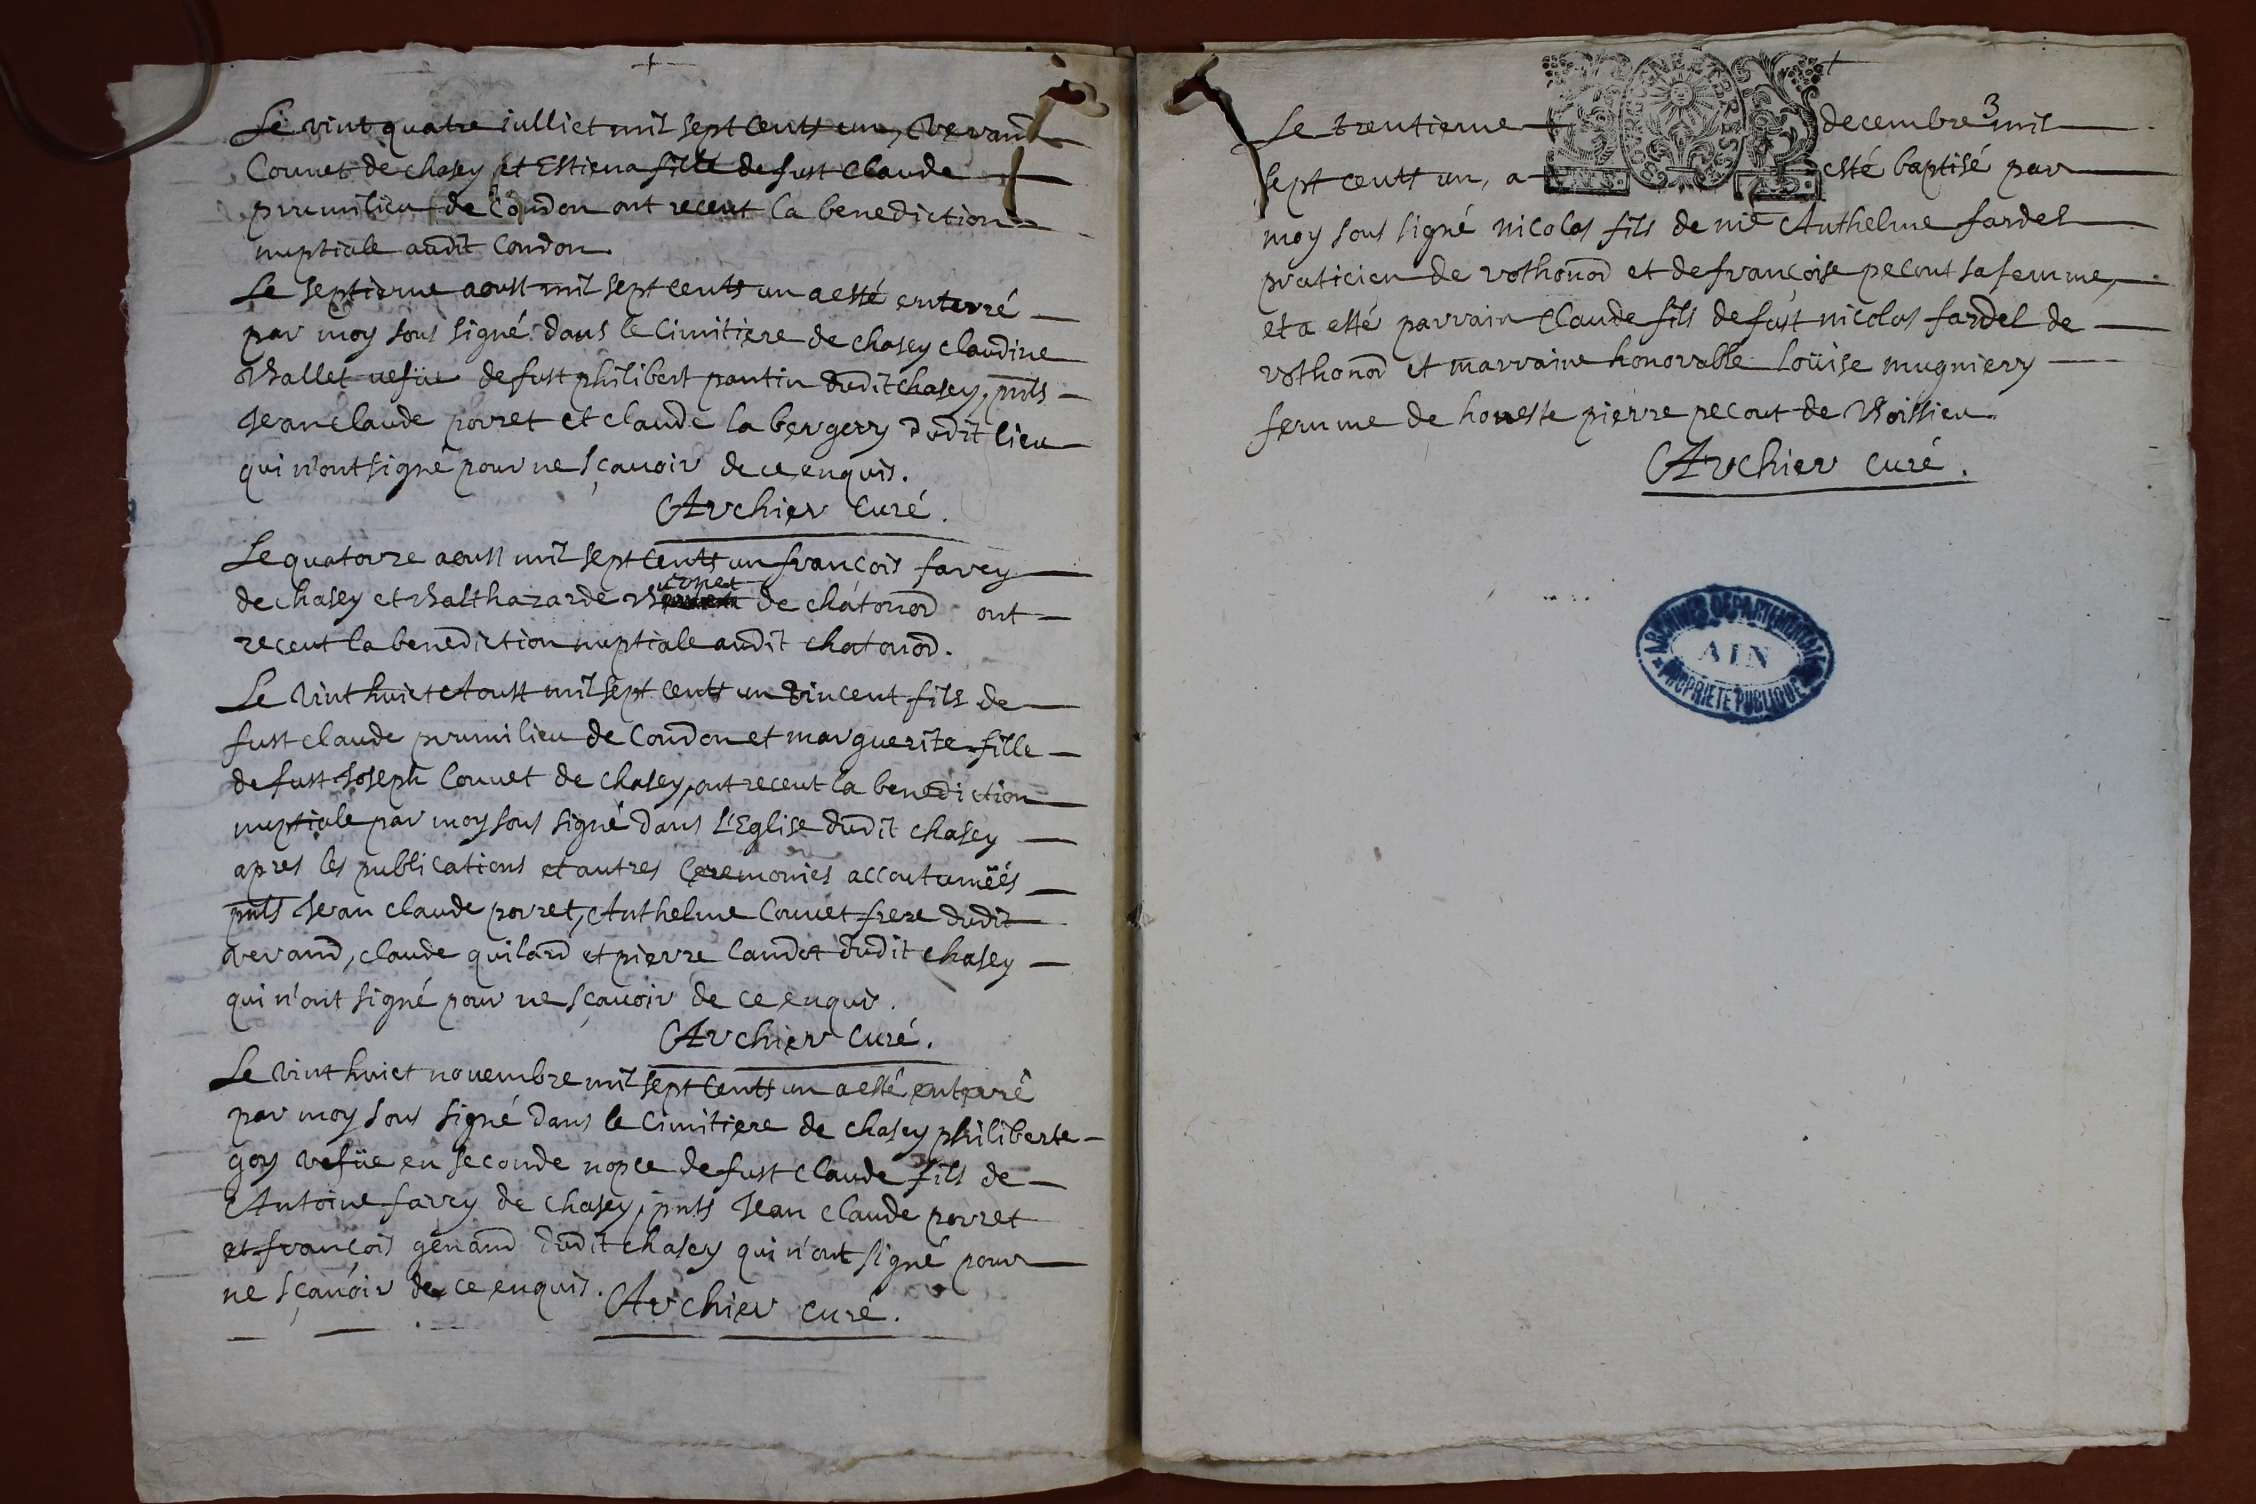 Le vint quatre iulliet mil sept cents un, Verand
Couuet de chasey et Estiena fille de fust Claude
prumilieu de Condon ont receut la benediction
nuptiale audit Condon
Le septieme aoust mil sept cents un a esté enterré
par moy sous signé dans le Cimitiere de chasey claudine
Ballet uefüe de fust philibert pantin dudit chasey, pnts
Jean claude porret et claude la bergery dudit lieu
qui n'ont signé pour ne sçauoir de ce enquis.
Archier Curé.
Le quatorze aoust mil sept cents un françois farcy
de chasey et Balthazarde de chatonod ont
receut la benediction nuptiale audit chatonod.
Le Vint huict Aoust mil sept cents un Vincent fils de
fust claude prumilieu de Condon et marguerite fille
de fust Joseph Couuet de chasey, ont receut la benediction
nuptiale par moy sous signé dans l'Eglise dudit chasey
apres les publications et autres Ceremonies accoutumëés
pnts Jean claude porret, Anthelme Couuet frere dudit
Verand, claude quilard et pierre laudet dudit chasey
qui n'ont signé pour ne sçauoir de ce enquis.
Archier Curé.
Le Vint huict nouembre mil sept Cents un a esté enterré
par moy sous signé dans le Cimitiere de chasey philiberte
goy vefüe en seconde nopce de fust claude fils de
Antoine farcy de chasey, pnts Jean claude porret
et françois genand dudit chasey qui n'ont signé pour
ne sçauoir de ce enquis. Archier curé.
Le trentieme decembre 3 mil
sept cents un, a esté baptisé par
moy sous signé nicolas fils de me Anthelme fardel
praticien de vothonod et de françoise pecout sa femme,
et a esté parrain Claude fils de fust nicolas fardel de
vothonod et marraine honorable Loüise mugniery
femme de honeste pierre pecout de Boissieu
Archier curé.
ARCHIVES DEPARTEMENTALES
AIN
PROPRIETE PUBLIQUE